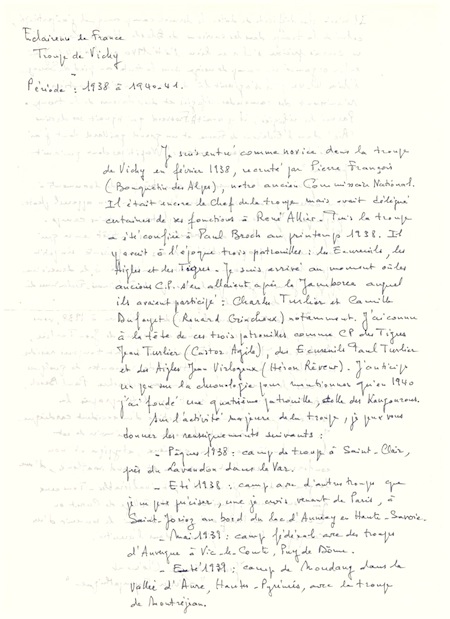 Eclaireurs de France
Troupe de Vichy
Période : 1938 à 1940-41.
Je suis entré comme novice dans la troupe
de Vichy en février 1938, recruté par Pierre François
(Bouquetin des Alpes), notre ancien Commissaire National.
Il était encore le Chef de la troupe mais avait délégué
certaines de ses fonctions à René Allier. Puis la troupe
a été confiée à Paul Broch au printemps 1938. Il
y avait à l'époque trois patrouilles : les Ecureuils, les
Aigles et les Tigres. Je suis arrivé au moment où les
anciens C.P. s'en allaient, après le Jamboree auquel
ils avaient participé : Charles Turlier et Camille
Dufayet (Renard Grincheux) notamment. J'ai connu
à la tête de ces trois patrouilles comme CP des Tigres
Jean Turlier (Castor Agile), des Ecureuils Paul Turlier
et des Aigles Jean Virlogeux (Héron Rêveur). J'anticipe
un peu sur la chronologie pour mentionner qu'en 1940
j'ai fondé une quatrième patrouille, celle des Kangourous.
Sur l'activité majeure de la troupe, je peux vous
donner les renseignements suivants :
- Pâques 1938 : camp de troupe à Saint-Clair,
près du Lavandou dans le Var.
- Eté 1938 : camp avec d'autres troupes que
je ne puis préciser, une je crois venant de Paris, à
Saint-Jorioz au bord du lac d'Annecy en Haute-Savoie.
- Mai 1939 : camp fédéral avec des troupes
d'Auvergne à Vic-le-Comte, Puy de Dôme.
- Eté 1939 : camp de Moudang dans la
vallée d'Aure, Hautes-Pyrénées, avec la troupe
de Montréjeau.